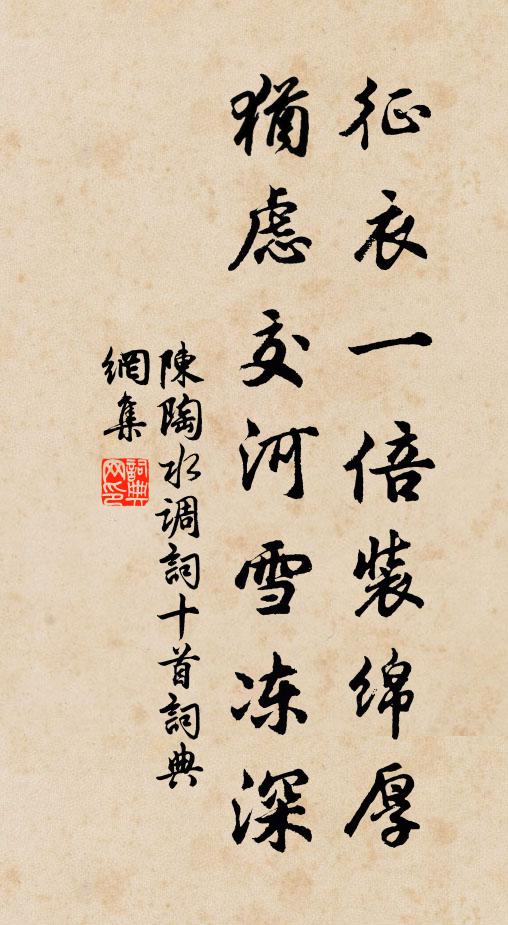 征衣一倍裝綿厚
猶慮交河雪冻深
陳陶水调詞十首詞典
網集
詞典
网印